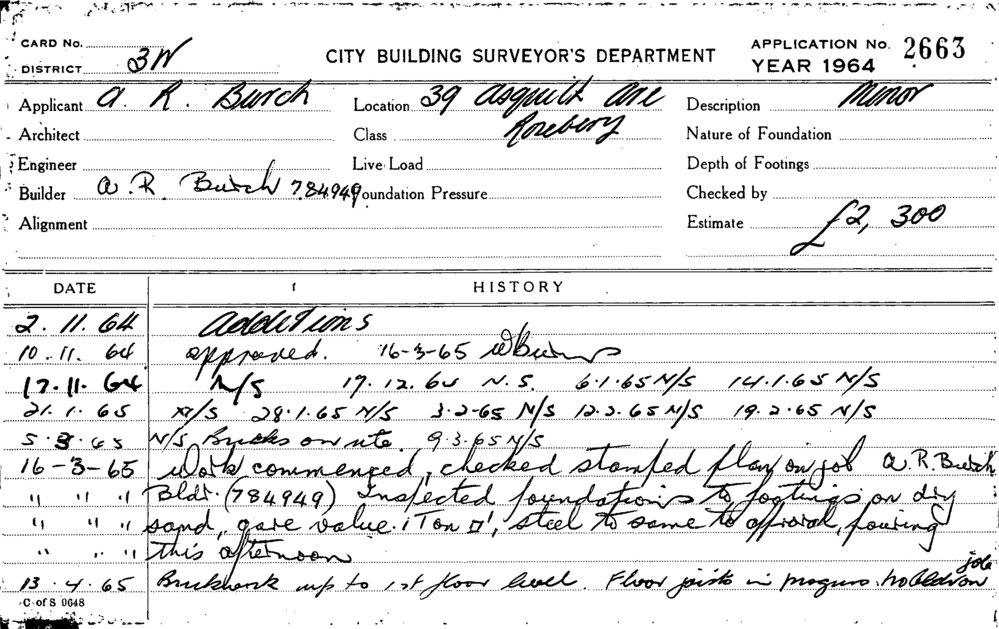 CARD No.
DISTRICT 3W
CITY BUILDING SURVEYOR'S DEPARTMENT
APPLICATION No. 2663
YEAR 1964
Applicant A. R. Burch
Location 39 Asquith Ave
Rosebery
Description Minor
Architect
Class
Nature of Foundation
Engineer
Live Load
Depth of Footings
Builder A. R. Burch 784949
Foundation Pressure
Checked by
Alignment
Estimate £2,300
DATE HISTORY
2.11.64 Additions
10.11.64 approved. 16-3-65
17.11.64 N/S 17.12.64 N.S. 6.1.65 N/S 14.1.65 N/S
21.1.65 N/S 28.1.65 N/S 3-2-65 N/S 12.2.65 N/S 19.2.65 N/S
5.3.65 N/S Bricks on site. 9.3.65 N/S
16-3-65 Work commenced, checked stamped plan on job A.R. Burch
" " " Bldr. (784949) Inspected foundations to footings on dry
" " " sand, gave value 1 Ton □', steel to same to approval, pouring
" " " this afternoon
13.4.65 Brickwork up to 1st floor level. Floor joists in progress. No bldr on job
C. of S 0648